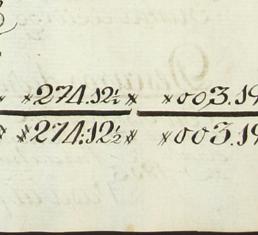 *274.12½* *003.19
*274.12½* *003.19